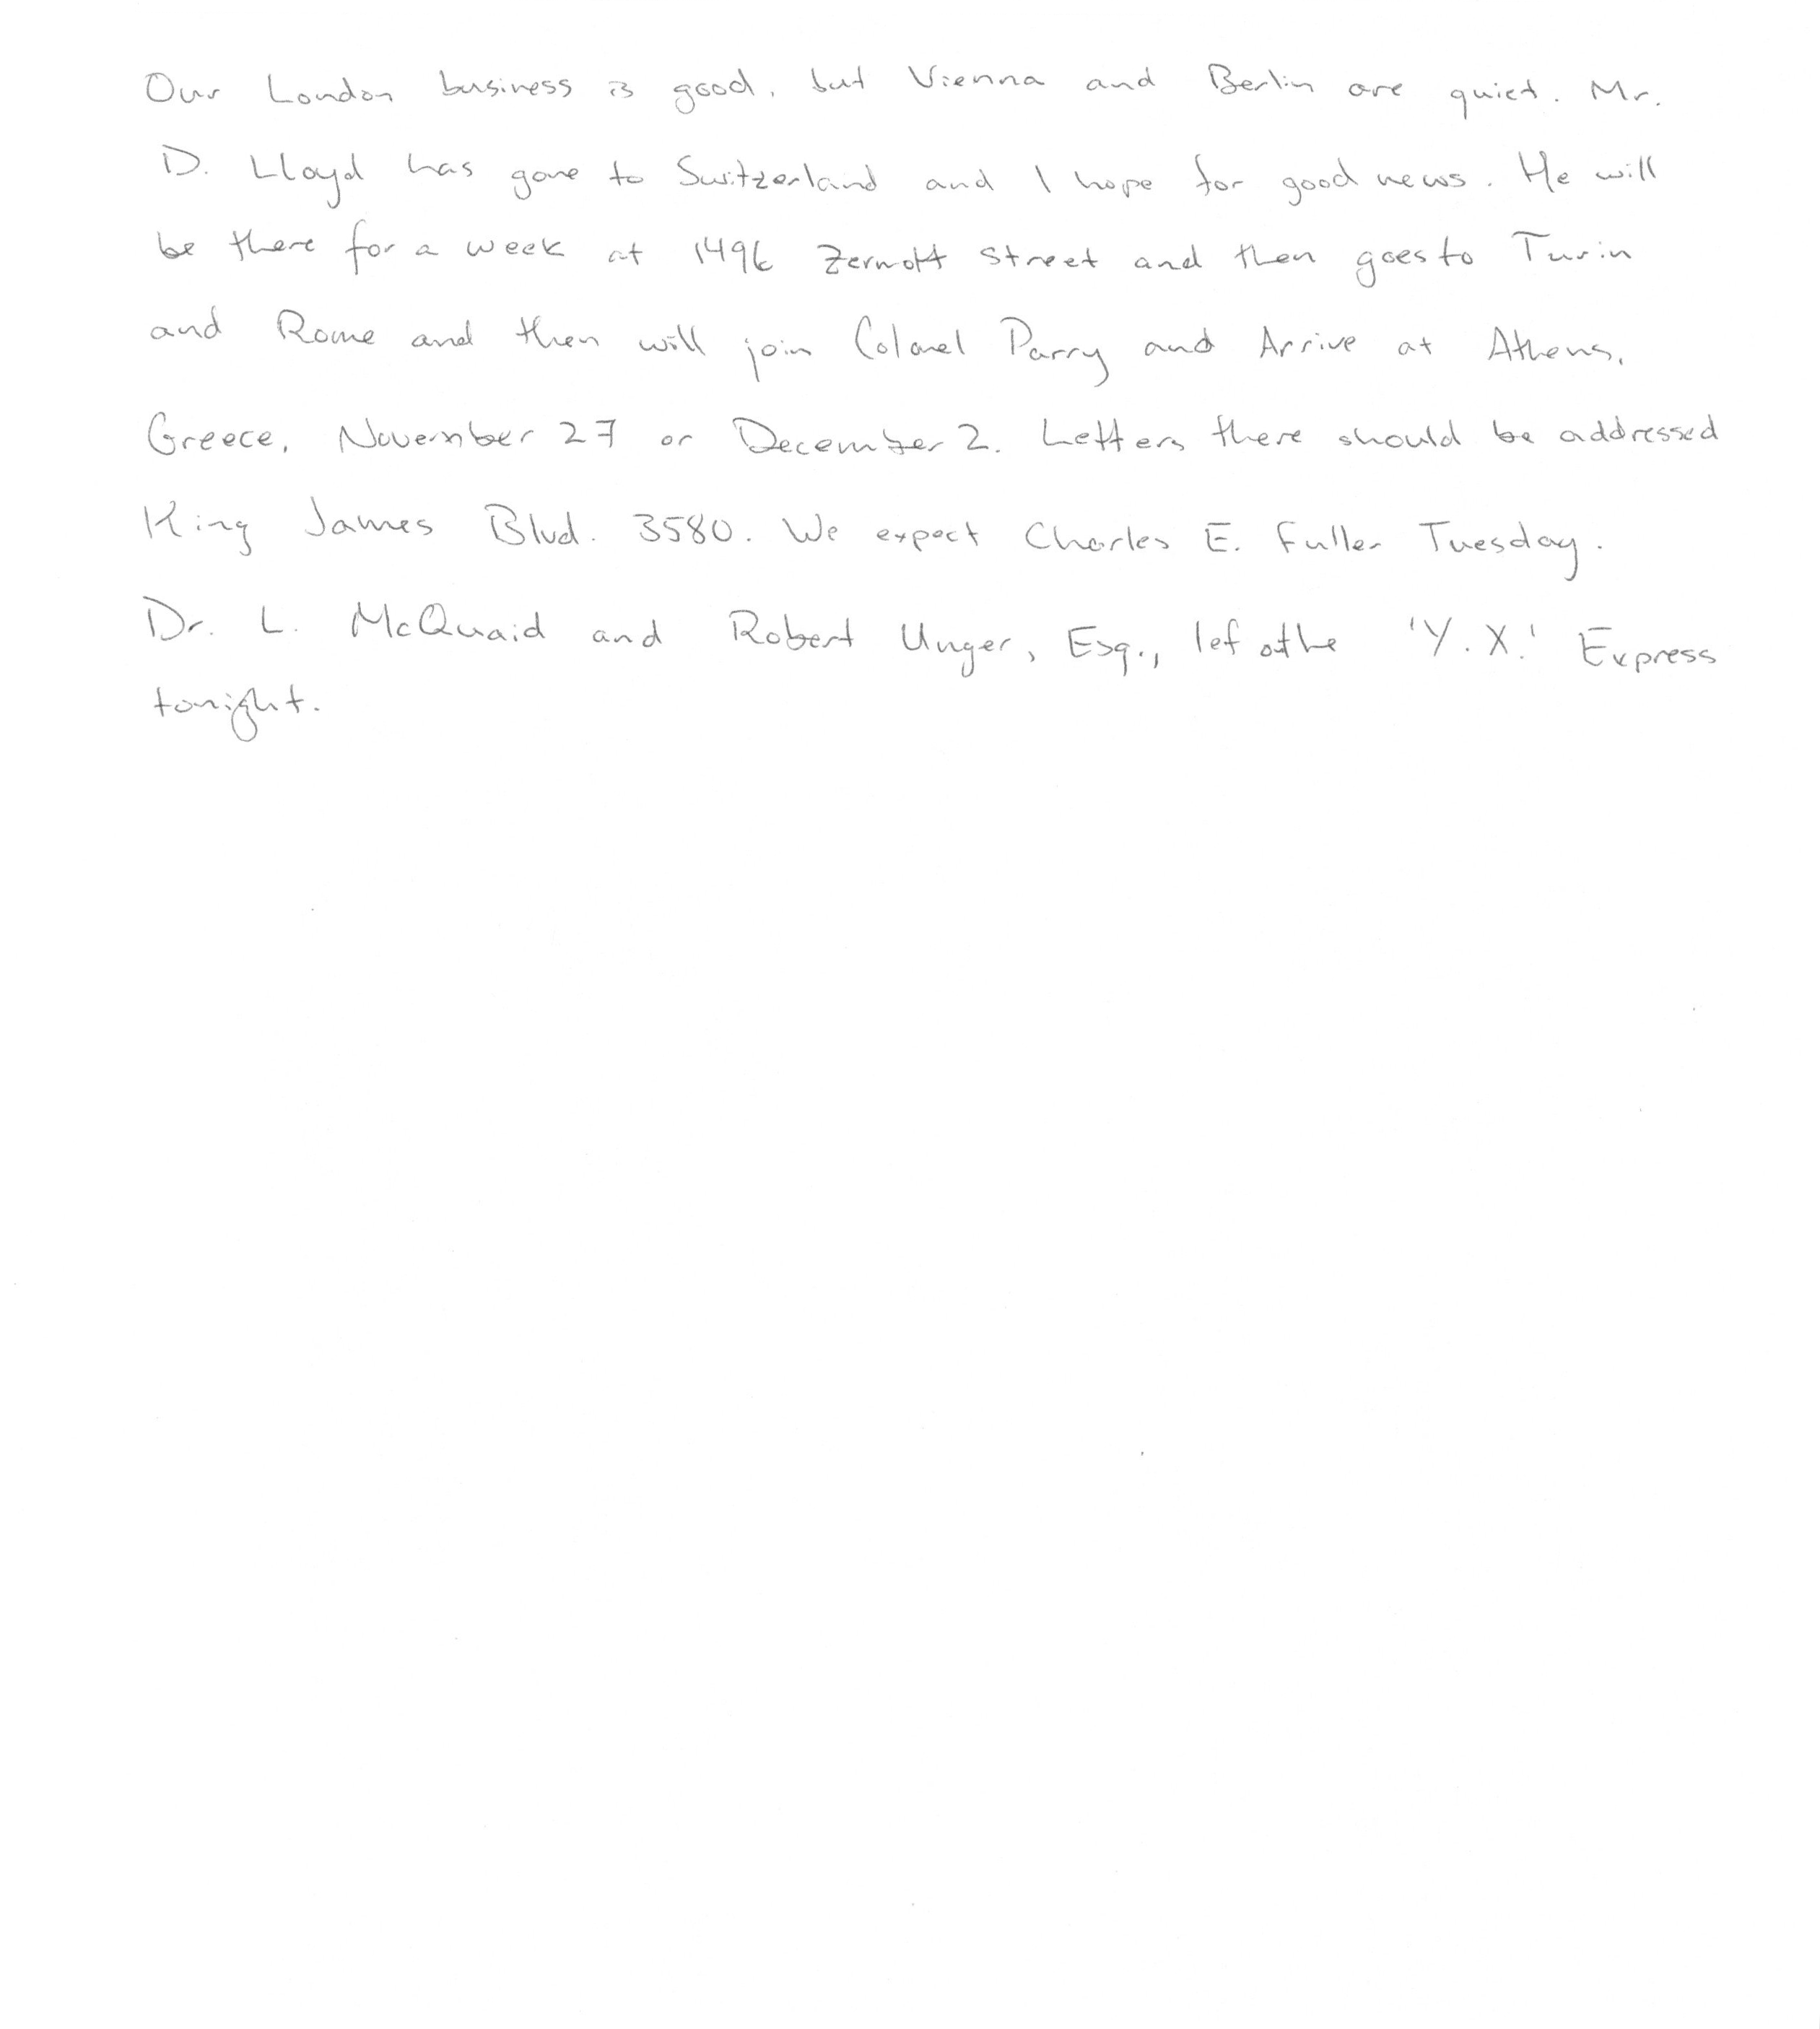 Our London business is good, but Vienna and Berlin are quiet. Mr.
D. Lloyd has gone to Switzerland and I hope for good news. He will
be there for a week at 1496 Zermott Street and then goes to Turin
and Rome and then will join Colonel Parry and Arrive at Athens,
Greece, November 27 or December 2. Letters there should be addressed
King James Blvd. 3580. We expect Charles E. Fuller Tuesday.
Dr. L. McQuaid and Robert Unger, Esq., lef the 'Y. X.' Express
tonight.